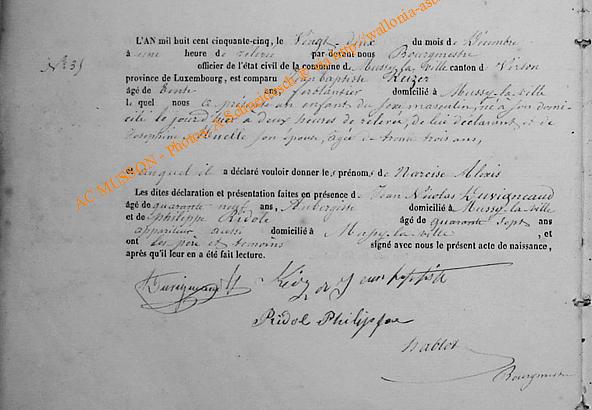 N° 35
L'AN mil huit cent cinquante-cinq, le Vingt deux du mois de Décembre
à une heure de relevée par-devant nous Bourgmestre
officier de l'état civil de la commune de Mussy-la-Ville canton de Virton
province de Luxembourg, est comparu Jean Baptiste Keizer
âgé de trente ans, ferblantier domicilié à Mussy-la-ville
L quel nous a présenté un enfant du sexe masculin, né à son domi-
cile le jour d'hier à deux heures de relevée, de lui déclarant et de
Joséphine son épouse, âgée de trente trois ans,
et auquel il a déclaré vouloir donner les prénoms de Narcisse Alexis
Les dites déclaration et présentation faites en présence de Jean Nicolas
âgé de quarante neuf ans, Aubergiste domicilié à Mussy-la-Ville
et de Philippe Ridole âgé de quarante sept ans
appariteur aussi domicilié à Mussy-la-ville, et
ont les père et témoins signé avec nous le présent acte de naissance,
après qu'il leur en a été fait lecture.
Jean baptiste
Ridol Philippe
Bourgmestre
AC MUSSON - Photos: A.Schmidtschatz aai http://wallonia-as